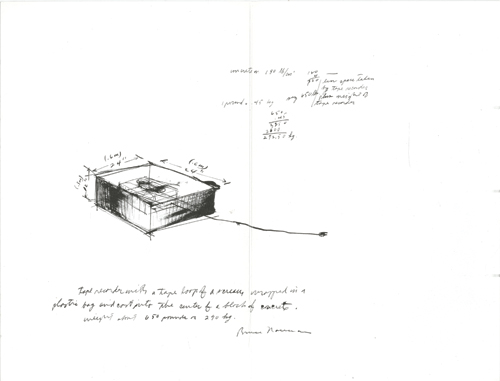 concrete 150 lb/
less space taken
by tape recorder
1 pound = .45 kg
650 lb
less weight of
tape recorder
650
.45
292.50 kg.
(.6m)
24"
(.6m)
24"
tape recorder with a tape loop of a scream wrapped in a
plastic bag and cast into the center of a block of concrete.
weight about 650 pounds or 290 kg.
Bruce Nauman